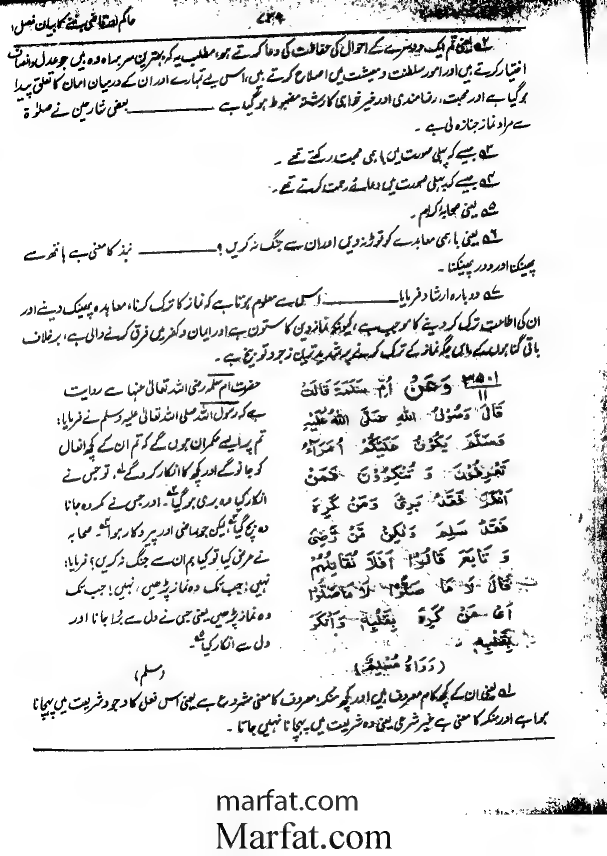 حاکم (قاضی) بننے کا بیان فصل ۱
۷۴۹
۲ یعنی تم ایک دوسرے کے احوال کی حفاظت کی دعا کرتے ہو، مطلب یہ کہ بہترین سربراہ وہ ہیں جو عدل و انصاف
اختیار کرتے ہیں اور امور سلطنت و معیشت میں اصلاح کرتے ہیں، اس لیے تمہارے اور ان کے درمیان امان کا تعلق پیدا
ہو گیا ہے اور محبت، رضامندی اور خیر خواہی کا رشتہ مضبوط ہو گیا ہے ——— بعض شارحین نے صلوٰۃ
سے مراد نماز جنازہ لی ہے۔
۳ جیسے کہ پہلی صورت میں باہمی محبت رکھتے تھے۔
۴ جیسے کہ پہلی صورت میں دعائے رحمت کرتے تھے۔
۵ یعنی صحابۂ کرام۔
۶ یعنی باہمی معاہدے کو توڑ نہ دیں اور ان سے جنگ نہ کریں؟ ——— نبذ کا معنی ہے ہاتھ سے
پھینکنا اور دور پھینکنا۔
۷ دوبارہ ارشاد فرمایا ——— اس سے معلوم ہوتا ہے کہ نماز کا ترک کرنا، معاہدہ پھینک دینے اور
ان کی اطاعت ترک کر دینے کا موجب ہے، کیونکہ نماز دین کا ستون ہے اور ایمان و کفر میں فرق کرنے والی ہے، برخلاف
باقی گناہوں کے، نماز کے ترک کرنے پر شدید ترین زجر و توبیخ ہے۔
۳۵۰۱
۱۱
وَعَنْ اُمِّ سَلَمَةَ قَالَتْ
قَالَ رَسُوْلُ اللهِ صَلَّى اللهُ عَلَيْهِ
وَسَلَّمَ يَكُوْنُ عَلَيْكُمْ اُمَرَآءُ
تَعْرِفُوْنَ وَ تُنْكِرُوْنَ فَمَنْ
اَنْكَرَ فَقَدْ بَرِئَ وَمَنْ كَرِهَ
فَقَدْ سَلِمَ وَلٰكِنْ مَّنْ رَّضِيَ
وَ تَابَعَ قَالُوْا اَفَلَا نُقَاتِلُهُمْ
قَالَ لَا مَا صَلَّوْا لَا مَا صَلَّوْا
اَيْ مَنْ كَرِهَ بِقَلْبِهٖ وَاَنْكَرَ
بِقَلْبِهٖ۔
(رَوَاهُ مُسْلِمٌ)
حضرت ام سلمہ رضی اللہ تعالیٰ عنہا سے روایت
ہے کہ رسول اللہ صلی اللہ تعالیٰ علیہ وسلم نے فرمایا:
تم پر ایسے حکمران ہوں گے کہ تم ان کے کچھ افعال
کو جانو گے اور کچھ کا انکار کرو گے ۱، تو جس نے
انکار کیا وہ بری ہو گیا ۲ اور جس نے مکروہ جانا
وہ بچ گیا ۳ لیکن جو راضی اور پیروکار ہوا ۴ صحابہ
نے عرض کیا تو کیا ہم ان سے جنگ نہ کریں؟ فرمایا:
نہیں! جب تک وہ نماز پڑھیں، نہیں! جب تک
وہ نماز پڑھیں یعنی جس نے دل سے برا جانا اور
دل سے انکار کیا ۵
(مسلم)
۱ یعنی ان کے کچھ کام معروف ہیں اور کچھ منکر، معروف کا معنی مشروع ہے یعنی اس فعل کا وجود شریعت میں پہچانا
ہوا ہے اور منکر کا معنی ہے غیر شرعی یعنی وہ شریعت میں پہچانا نہیں جاتا۔
marfat.com
Marfat.com